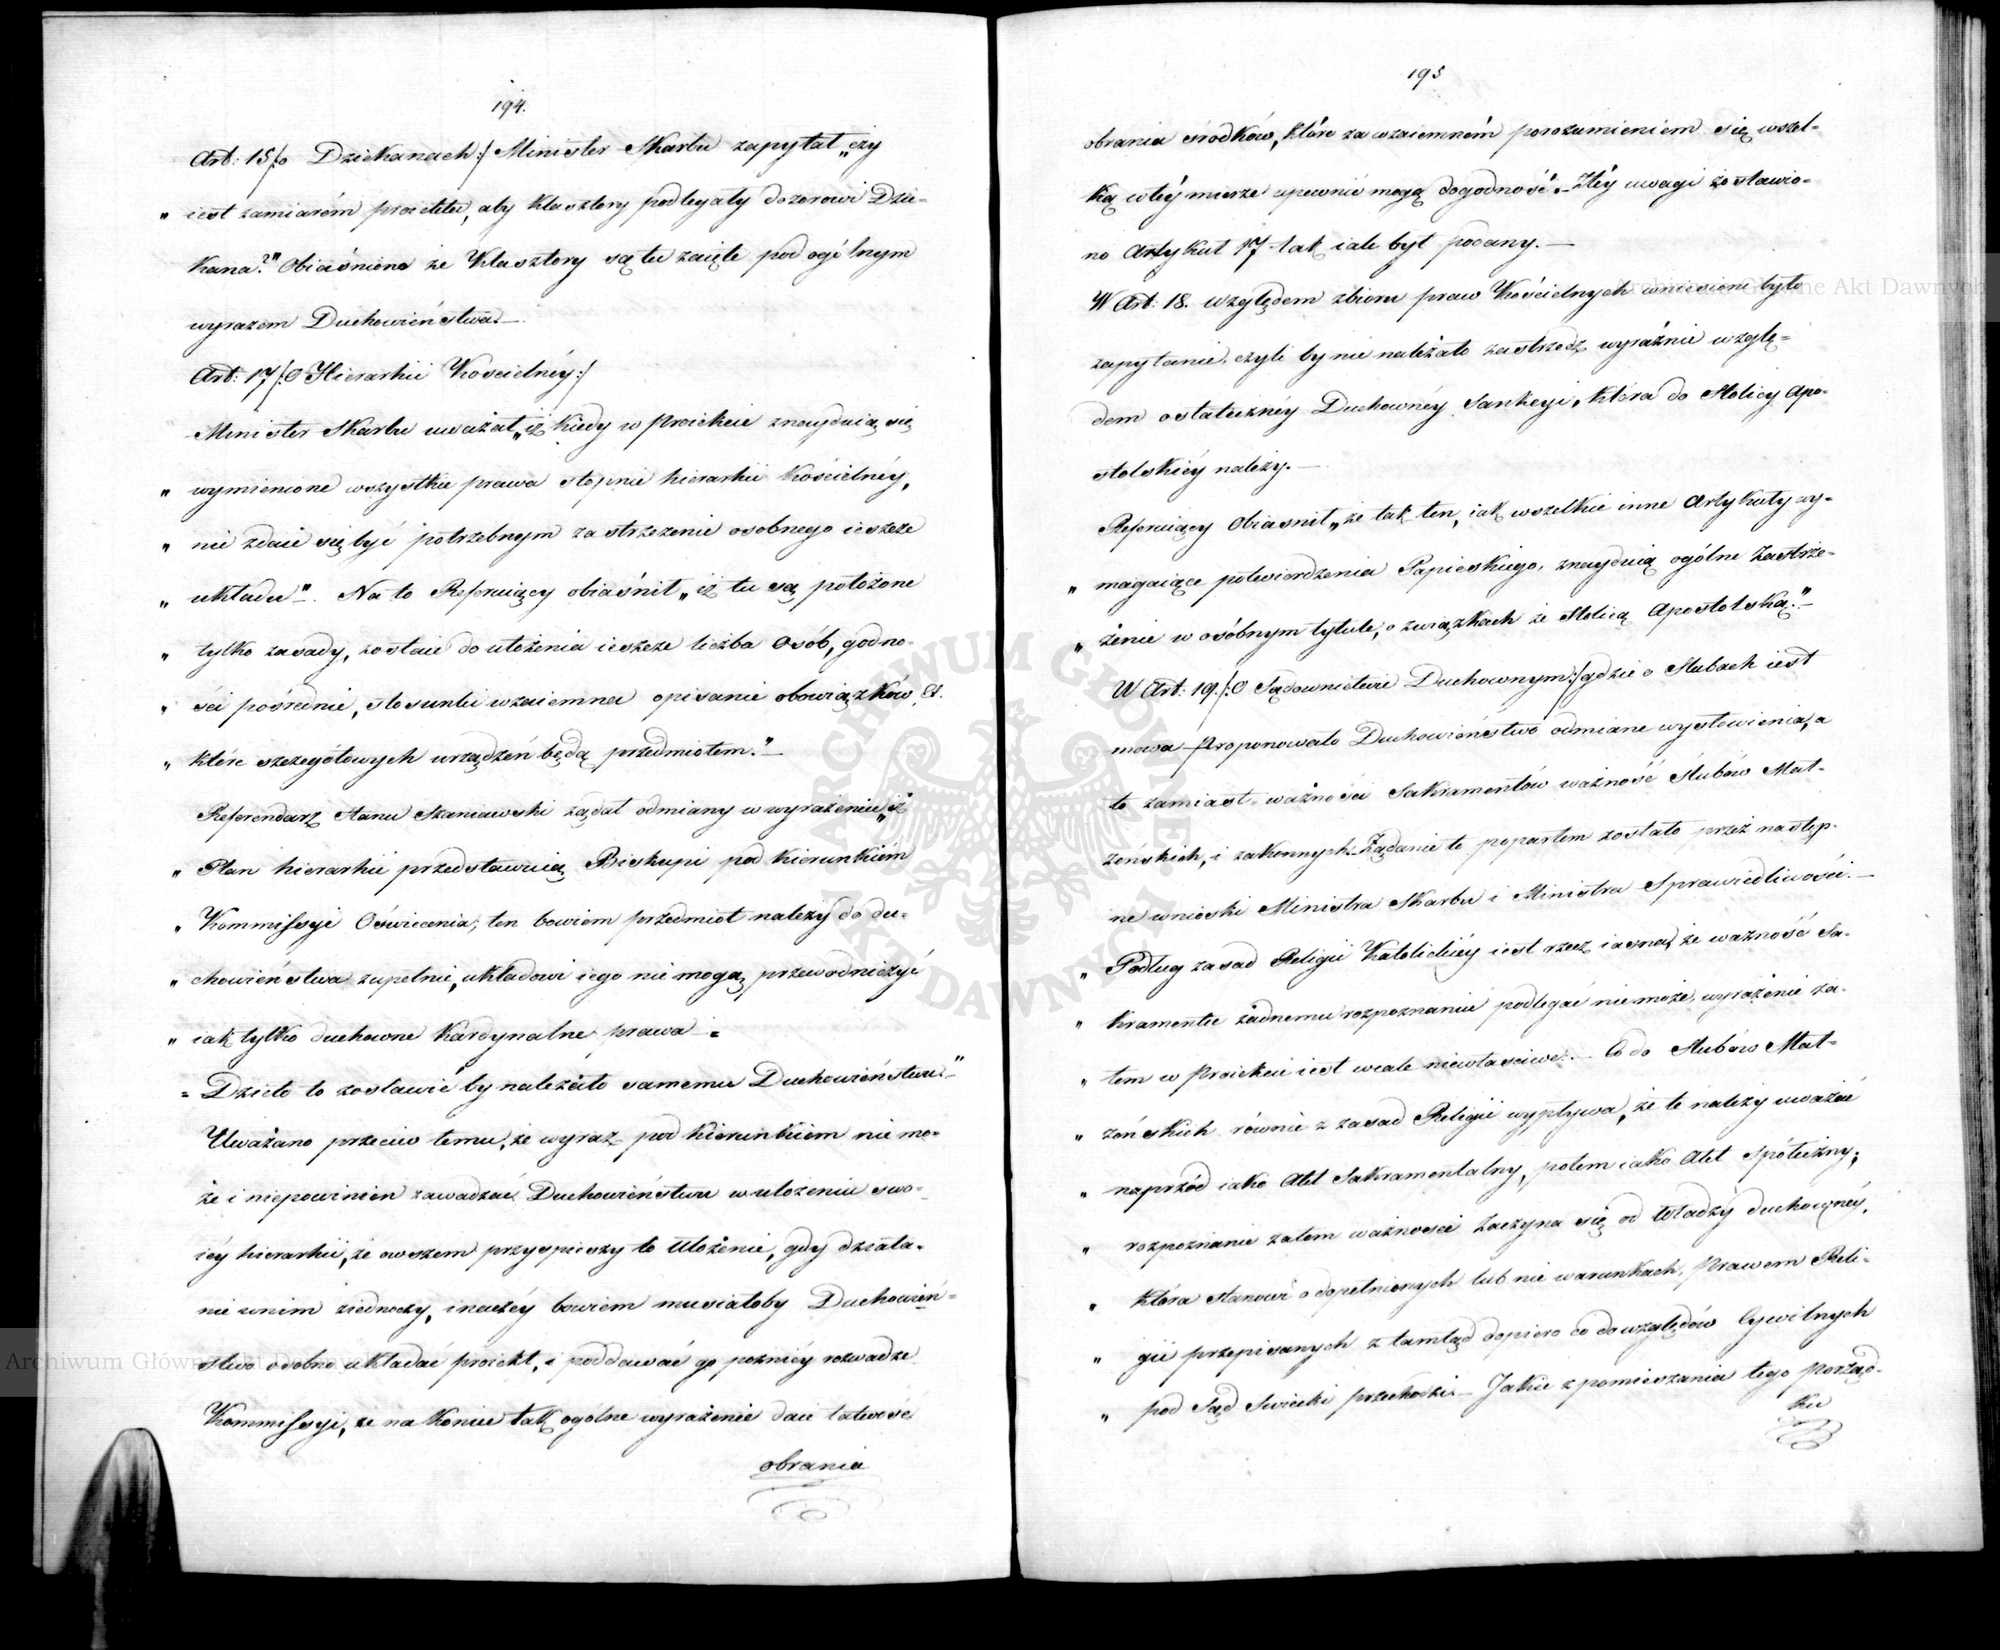 194.
Art: 15/:o Dziekanach:/ Minister Skarbu zapytał „czy
„ iest zamiarém proiektu, aby Klasztory podlegały dozorowi Dzie-
kana?" Obiaśniono że Klasztory są tu zaięte pod ogólnym
wyrazem Duchowieństwa.—
Art: 17/:O Hierarhii Kościelnéy:/
Minister Skarbu uważał „iż kiedy w Proiekcie znayduią się
„ wymienione wszystkie prawa stopnie hierarhii Kościelnéy,
„ nie zdaie się być potrzebnym zastrzeżenie osobnego ieszcze
„ układu". Na to Referuiący obiaśnił „iż tu są położone
„ tylko zasady, zostaie do ułożenia ieszcze liczba Osób, godno-
„ ści pośrednie, stosunki wzaiemne opisanie obowiązków, &.
„ które szczegółowych urządzeń będą przedmiotem."—
Referendarz Stanu Staniawski żądał odmiany w wyrażeniu „iż
„ Plan hierarhii przedstawuią Biskupi pod kierunkiém
„ Kommissyi Oświecenia, ten bowiem przedmiot należy do du-
„ chowieństwa zupełnie, układowi iego nie mogą przewodniczyć
„ iak tylko duchowne Kardynalne prawa –=
= Dzieło to zostawić by należało samemu Duchowieństwu."—
Uważano przeciw temu, że wyraz pod kierunkiem nie mo-
że i niepowinien zawadzać Duchowieństwu w ułożeniu swo-
iéy hierarhii, że owszem przyspieszy to Ułożenie, gdy działa-
nie w nim ziednoczy, inaczéy bowiem musiałoby Duchowień-
stwo osobno układać proiekt, i poddawać go poźniéy rozwadze
Kommissyi, że na koniec tak ogólne wyrażenie daie łatwość
obrania
195
obrania środków, które za wzaiemném porozumieniem się wszel-
ką w téy mierze upewnić mogą dogodność.– Z téy uwagi zostawio-
no Artykuł 17 tak iak był podany.—
W Art: 18. względem zbioru praw Kościelnych wniesione było
zapytanie, czyli by nie należało zastrzedz wyraźnie wzglę-
dem ostatecznéy Duchownéy Sankcyi, która do Stolicy Apo-
stolskiéy należy.—
Referuiący Obiasnił „że tak ten, iak wszelkie inne Artykuły wy-
„ magaiące potwierdzenia Papieskiego, znayduią ogólne zastrze-
„ żenie w osóbnym tytule, o związkach ze Stolicą Apostolską."—
W Art: 19./:O Sądownictwie Duchownym:/ gdzie o Slubach iest
mowa Proponowało Duchowieństwo odmiane wysłowienia, a
to zamiast ważności Sakramentów ważność Slubów Mał-
żeńskich, i zakonnych. Żądanie to popartem zostało przez następ-
ne wnioski Ministra Skarbu i Ministra Sprawiedliwości.—
„ Podług zasad Religii Katolickiéy iest rzecz iasna, że ważność Sa-
„ kramentu żadnemu rozpoznaniu podlegać nie może, wyrażenie za-
„ tem w Proiekcie iest wcale niewłaściwe.— Co do Slubów Mał-
„ żeńskich równie z zasad Religii wypływa, że te należy uważać
„ naprzód iako Akt Sakramentalny, potem iako Akt Społeczny;
„ rozpoznanie zatem ważnosci zaczyna się od Władzy duchownéy,
„ która stanowi o dopełnionych lub nie warunkach, Prawem Reli-
„ gii przepisanych z tamtąd dopiero co do względów Cywilnych
„ pod Sąd Swiecki przechodzi.— Jakie z pomieszania tego porząd-
ku